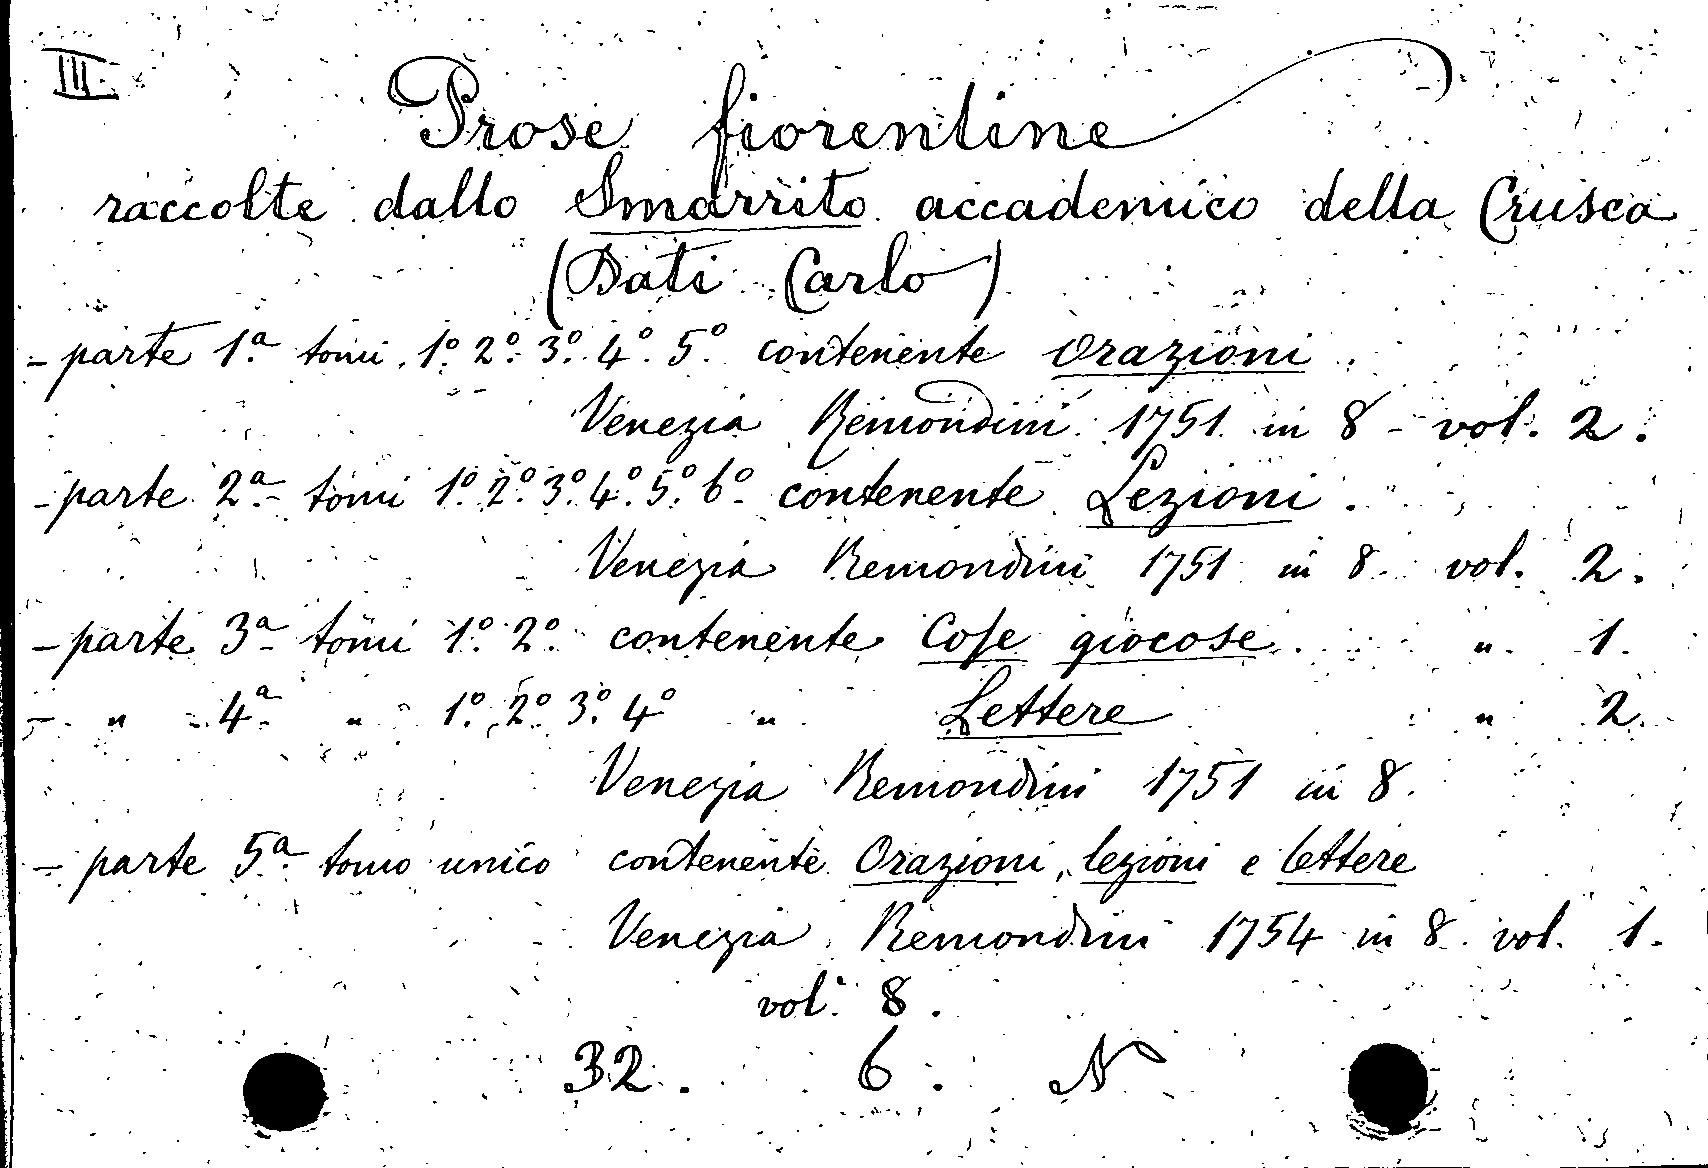 III
Prose fiorentine
raccolte dallo Smarrito accademico della Crusca
(Dati Carlo)
- parte 1.a tomi 1.º 2.º 3.º 4.º 5.º contenente Orazioni.
Venezia Remondini 1751 in 8 - vol. 2.
- parte 2.a tomi 1.º 2.º 3.º 4.º 5.º 6.º contenente Lezioni.
Venezia Remondini 1751 in 8. vol. 2.
- parte 3.a tomi 1.º 2.º contenente Cose giocose. " 1.
- " 4.a " 1.º 2.º 3.º 4.º " Lettere " 2.
Venezia Remondini 1751 in 8.
- parte 5.a tomo unico contenente Orazioni, lezioni e lettere
Venezia Remondini 1754 in 8. vol. 1.
vol. 8.
32. 6. N